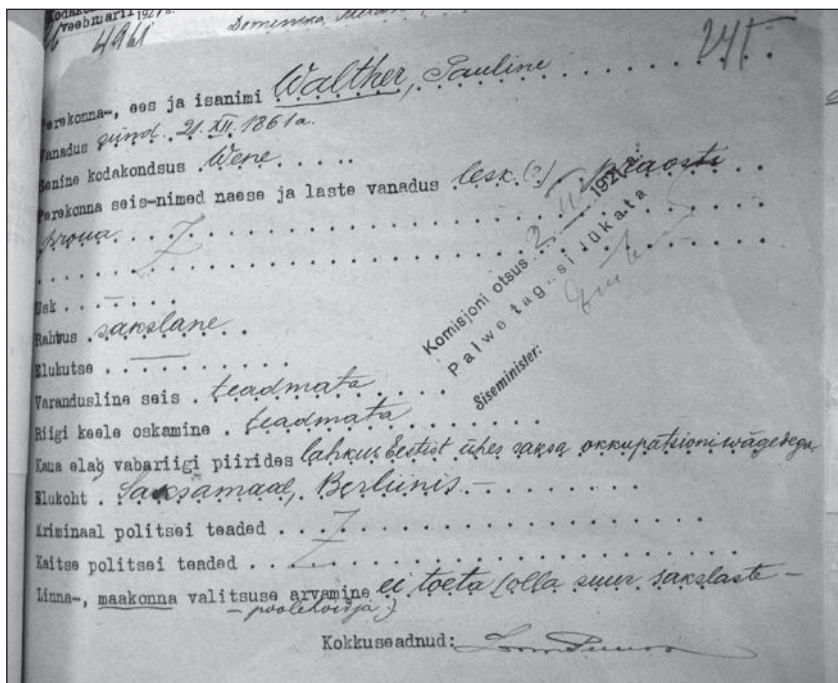 Kodako
veebruaril 1921 a.
4961
Dominika
24t
Perekonna-, ees ja isanimi Walther, Pauline
Vanadus sünd. 21. XII. 1861a.
Senine kodakondsus Wene
Perekonna seis-nimed naese ja laste vanadus lesk (?), praosti
proua
Usk . —
Rahvus . sakslane
Elukutse . —
Varandusline seis . teadmata
Riigi keele oskamine . teadmata
Kaua elab vabariigi piirides lahkus Eestist ühes saksa okkupatsioniwägedega
Elukoht . Saksamaal, Berliinis —
Kriminaal politsei teaded
Kaitse politsei teaded
Linna-, maakonna valitsuse arvamine ei toeta (olla suur sakslaste-
-poolehoidja.)
Kokkuseadnud:
Komisjoni otsus 2 192 a.
Palwe tag. si lükata
Siseminister: